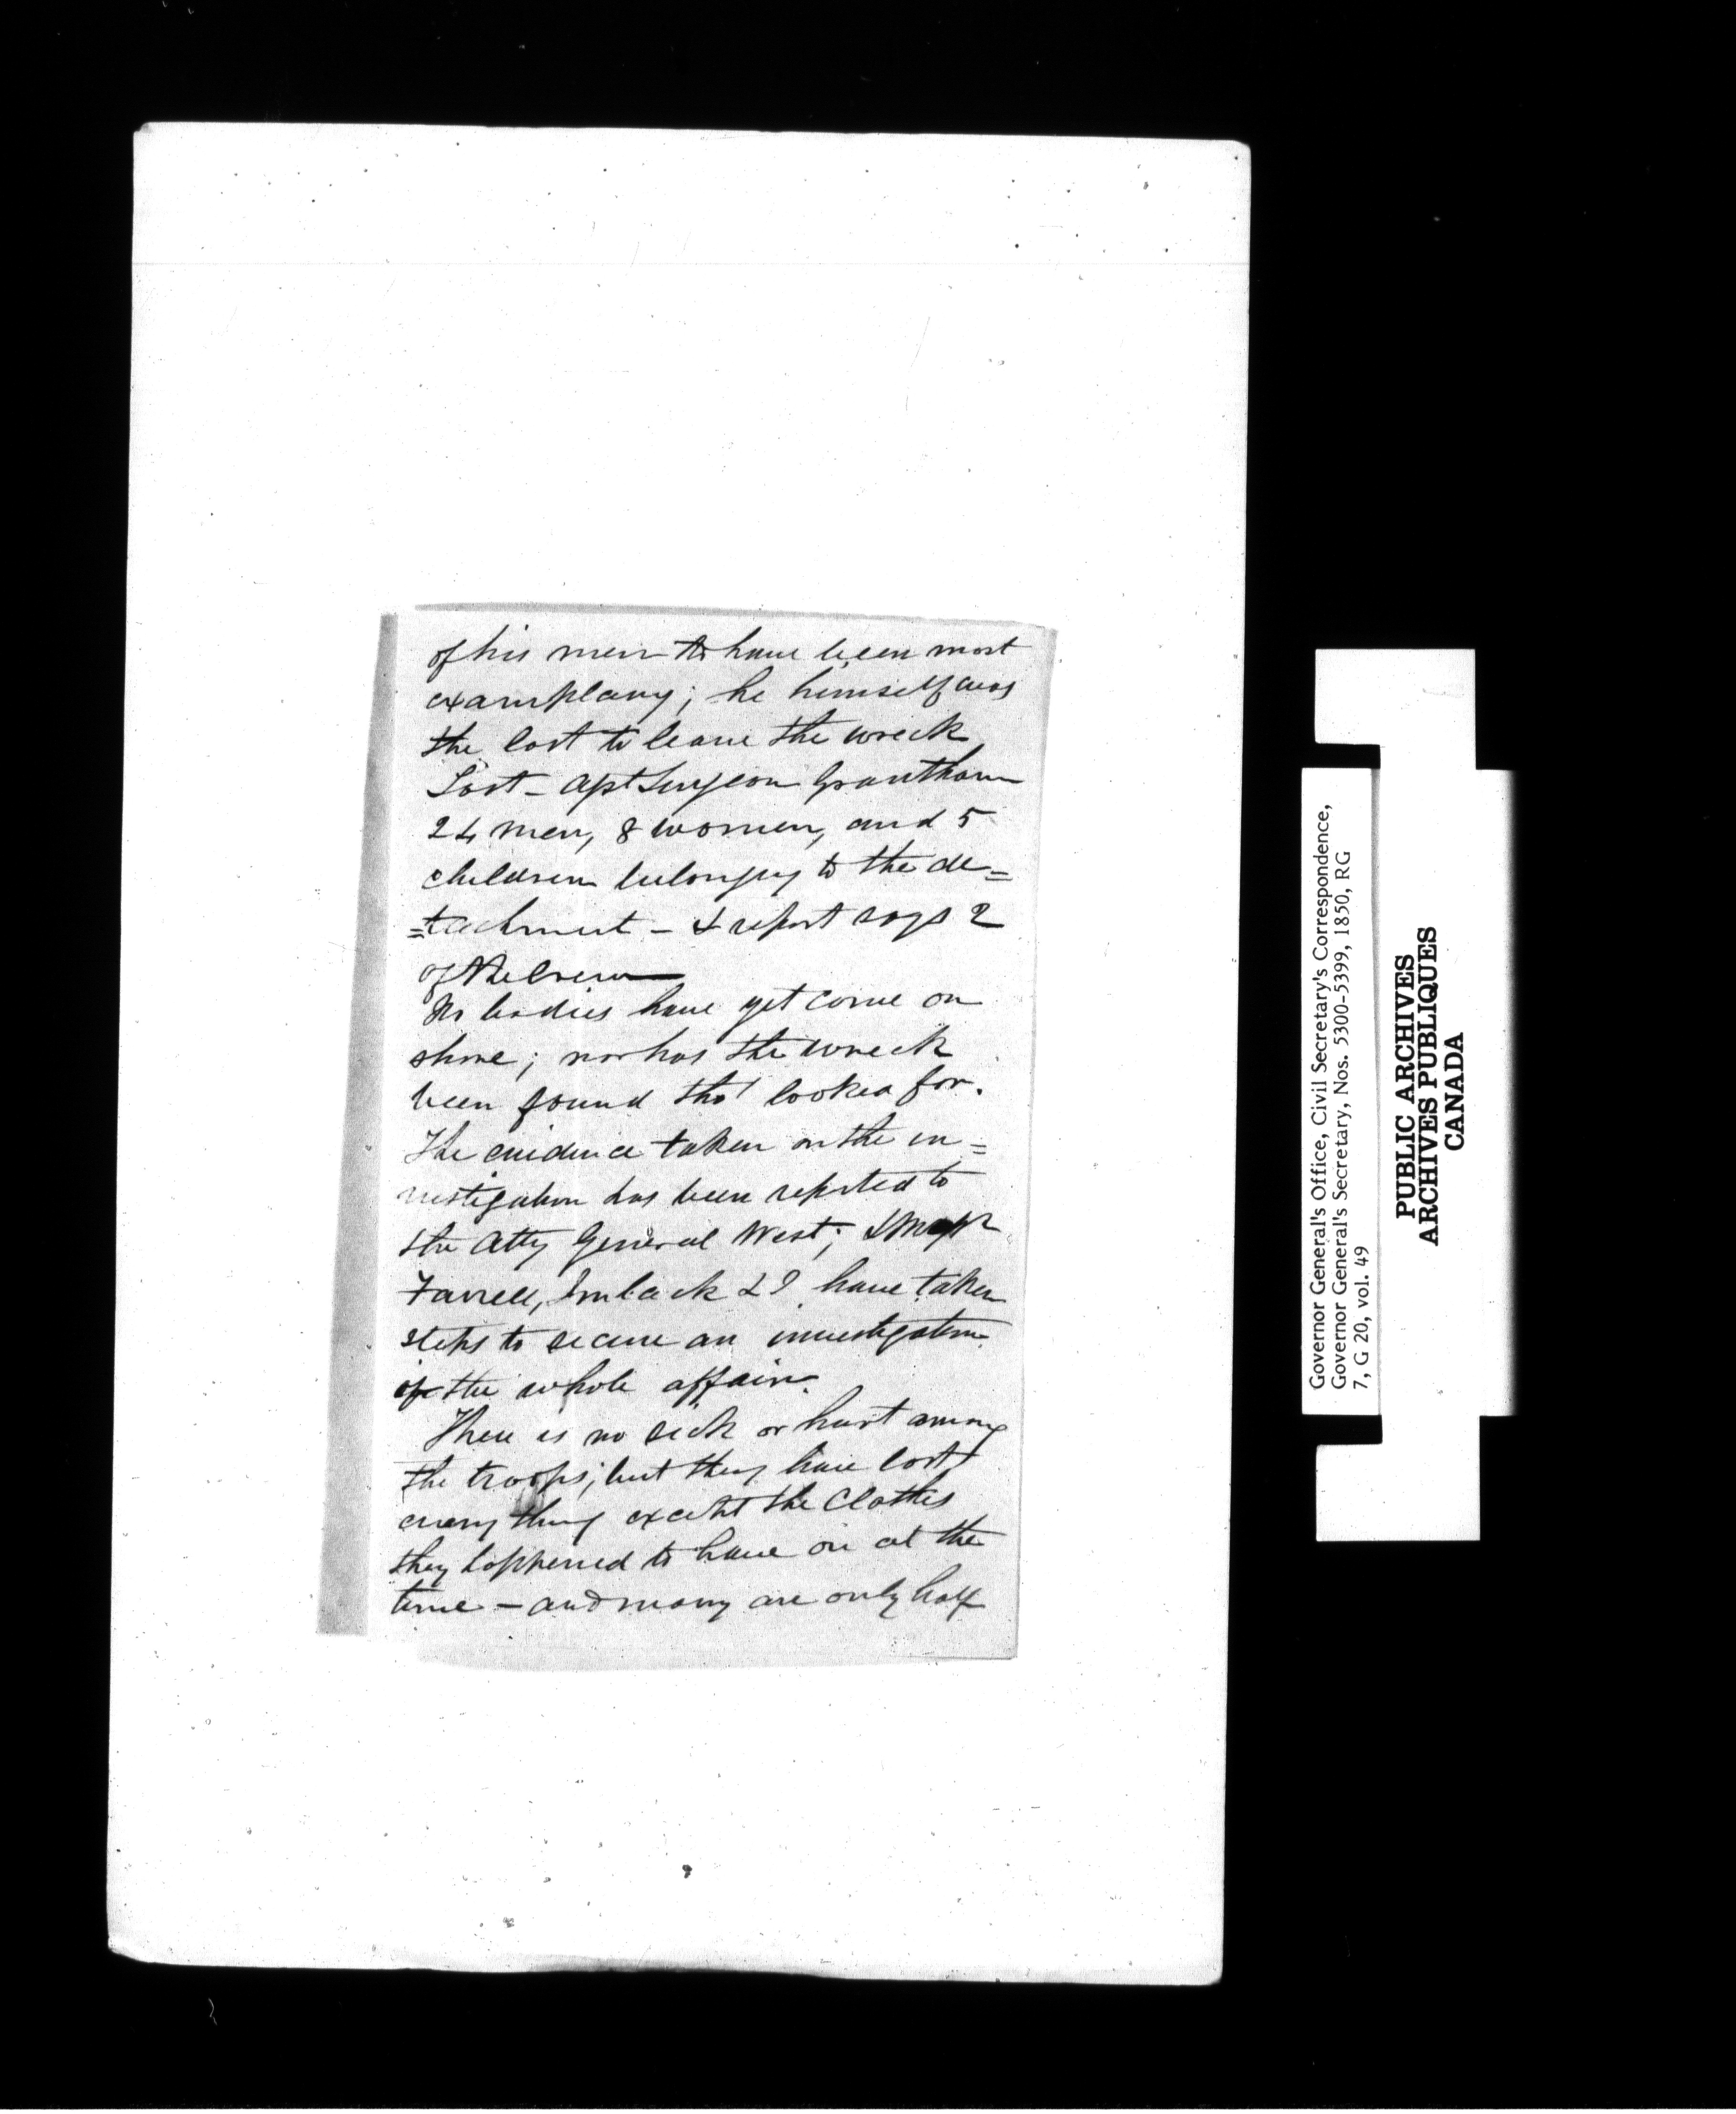 of his men to have been most
examplary; he himself was
the last to leave the wreck
Lost - Asst Surgeon Grantham
24 men, 8 women, and 5
children belonging to the de=
=tachment - & report says 2
of the crew
No bodies have yet come on
shore; nor has the wreck
been found tho' looked for.
The evidence taken on the in=
vestigation has been reported to
the Atty General West; &
Farrell, Imlack & I have taken
steps to secure an investigation
of the whole affair.
There is no sick or hurt among
the troops; but they have lost
every thing except the Clothes
they happened to have on at the
time - and many are only half
Governor General's Office, Civil Secretary's Correspondence,
Governor General's Secretary, Nos. 5300-5399, 1850, RG
7, G 20, vol. 49
PUBLIC ARCHIVES
ARCHIVES PUBLIQUES
CANADA